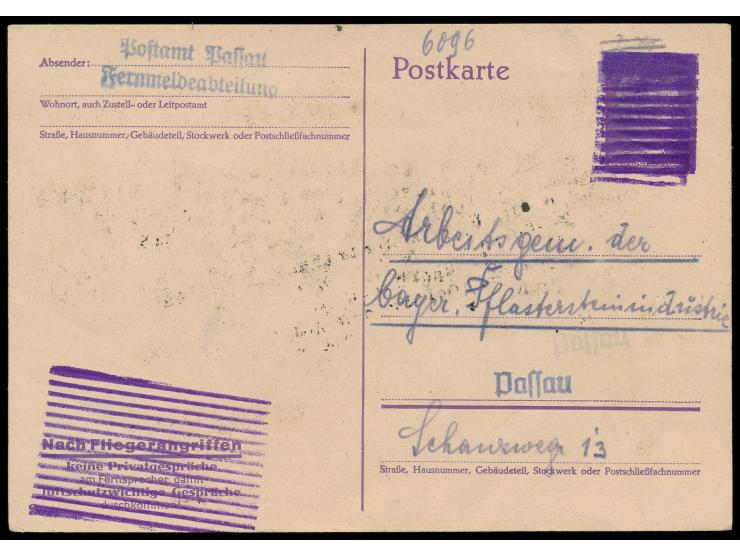 6096
Absender:
Postamt Passau
Fernmeldeabteilung
Wohnort, auch Zustell- oder Leitpostamt
Straße, Hausnummer, Gebäudeteil, Stockwerk oder Postschließfachnummer
Postkarte
Arbeitsgem. der
bayer. Pflastersteinindustrie
Passau
Passau
Schanzweg 13
Straße, Hausnummer, Gebäudeteil, Stockwerk oder Postschließfachnummer
Nach Fliegerangriffen
keine Privatgespräche
am Fernsprecher, damit
luftschutzwichtige Gespräche
durchkommen!